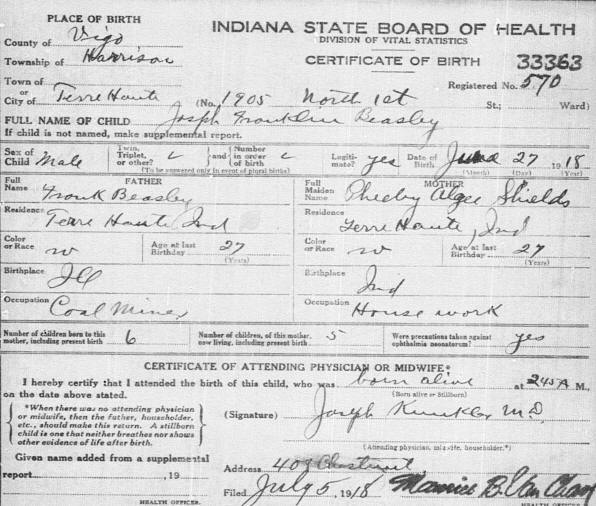 PLACE OF BIRTH
County of Vigo
Township of Harrison
Town of
or
City of Terre Haute
INDIANA STATE BOARD OF HEALTH
DIVISION OF VITAL STATISTICS
CERTIFICATE OF BIRTH 33363
Registered No. 570
(No. 1905 North 1st St.; Ward)
FULL NAME OF CHILD Joseph Franklin Beasley
If child is not named, make supplemental report.
Sex of Child Male
Twin, Triplet, or other? and Number in order of birth
(To be answered only in event of plural births)
Legiti-mate? yes
Date of Birth June 27 1918
(Month) (Day) (Year)
FATHER
Full Name Frank Beasley
Residence Terre Haute Ind
Color or Race W Age at last Birthday 27 (Years)
Birthplace Ill
Occupation Coal Miner
MOTHER
Full Maiden Name Pheeby Shields
Residence Terre Haute, Ind
Color or Race W Age at last Birthday 27 (Years)
Birthplace Ind
Occupation House work
Number of children born to this mother, including present birth 6
Number of children, of this mother, now living, including present birth 5
Were precautions taken against ophthalmia neonatorum? yes
CERTIFICATE OF ATTENDING PHYSICIAN OR MIDWIFE*
I hereby certify that I attended the birth of this child, who was born alive at 245 A M.
(Born alive or Stillborn)
on the date above stated.
*When there was no attending physician
or midwife, then the father, householder,
etc., should make this return. A stillborn
child is one that neither breathes nor shows
other evidence of life after birth.
(Signature) Joseph M.D.
(Attending physician, midwife, householder.*)
Given name added from a supplemental
report , 19
HEALTH OFFICER.
Address 409 Chestnut
Filed July 5, 1918
HEALTH OFFICER.